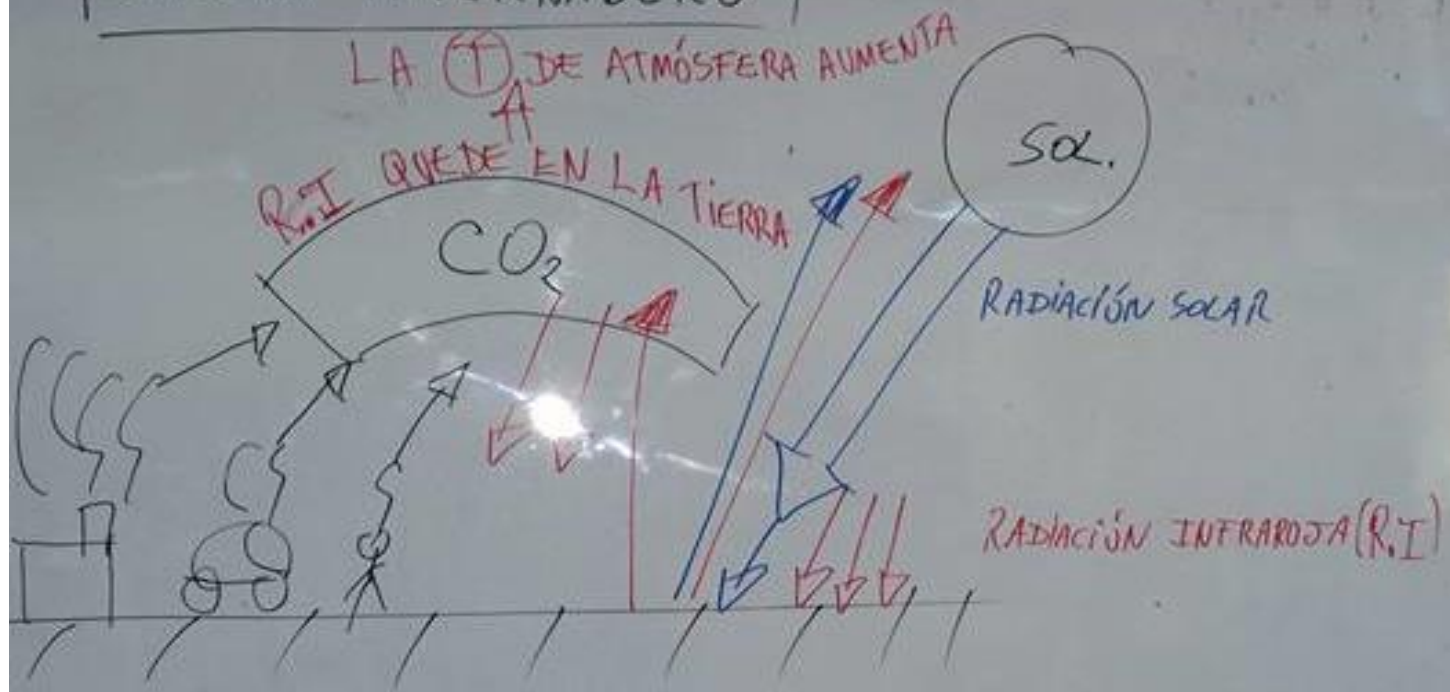 LA T DE ATMÓSFERA AUMENTA
R.I QUEDE EN LA TIERRA
CO₂
SOL.
RADIACIÓN SOLAR
RADIACIÓN INFRAROJA (R.I)